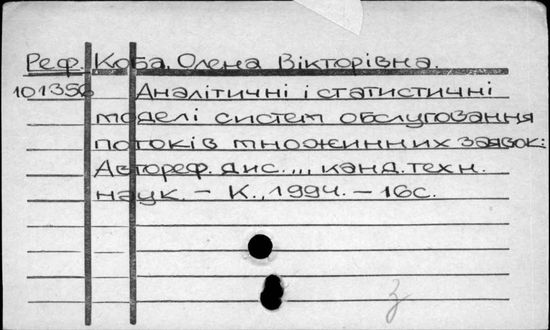 Реф. Коба Олена Вікторівна.
101356 Аналітичні і статистичні
моделі систем обслуговання
потоків множинних заявок:
Автореф. дис. ,,, канд. техн.
наук. – К., 1994. – 16с.